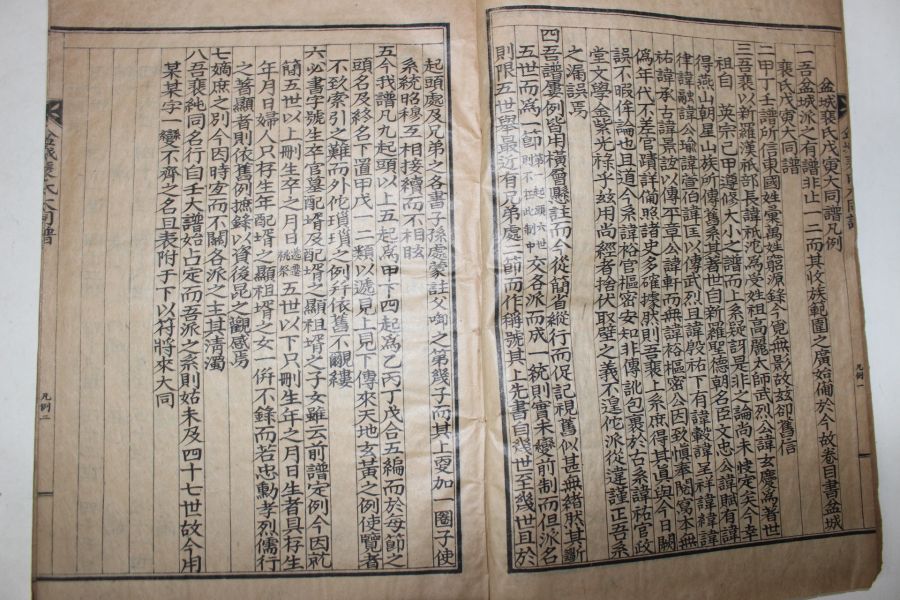 盆城裴氏戊寅大同譜凡例
一吾盆城派之有譜非止一二而其收族範圍之廣始備於今故卷目書盆城
裴氏戊寅大同譜
二甲丁壬譜所信東國姓彙萬姓窮源錄今覓無影故玆卻舊信
三吾裴以新羅漢祇部長諱祇沱爲受姓祖高麗太師武烈公諱玄慶爲著世
祖自 英宗己甲遵修大小之譜而上系疑訝是非之論尙未定矣今幸
得燕山朝星山族所傳舊系其著世自新羅聖德朝名臣文忠公諱賦有諱
律諱諱融諱公瑜諱萱伯諱匡以傳武烈且諱殷祐下有諱轂諱呈祥諱禕諱
祐諱承古諱景以傳平章公諱軒而無諱裕樞密公因致愼奉閱寫本無
僞年代不差官蹟詳備照諸史多確據然則吾裴上系庶得其眞與今日闕
誤不暇侔論也且道今系諱裕官樞密安知非傳訛包裹於古系諱祐官政
堂文學金紫光祿乎玆用尙經者捨伏取壁之義不遑佗派從違謹正吾系
之漏誤焉
四吾譜婁例皆用橫曾懸註而今從簡省縱行而促記視舊似甚無緖然其
五世而爲一節 交各派而成一統則實未變前制而但派名
則限五世擧最近有兄弟處一節而作稱號其上先書自幾世至幾世且於
起頭處及兄弟之各書子孫處蒙註父啣之第幾子而其上更加一圈子使
系統昭穆互相接續而不相眩
五今我譜凡九起頭以上五起爲甲下四起爲乙丙丁戊合五編而於每節之
頭名及終名下置甲戊一二類以遞見上見下傳來天地玄黃之例使覽者
不致索引之難而外佗瑣瑣之例幷依舊不覼縷
六必書字號生卒官墓配壻及配壻之顯祖壻之子女雖云前譜定例今因就
簡五世以上刪生卒之月日 五世以下只刪生年之月日生者具存生
年月日婦人只存生年配壻之顯祖壻之女一倂不錄而若忠勳孝烈儒行
之善顯者則依舊例摭錄以資後昆之觀感焉
七嫡庶之別今因時宐而不關各派之主其淸濁
八吾裴純同名行自壬大譜始占定而吾派之系則姑未及四十七世故今用
某某字一變不齊之名且表附于下以符將來大同
凡例一
凡例二